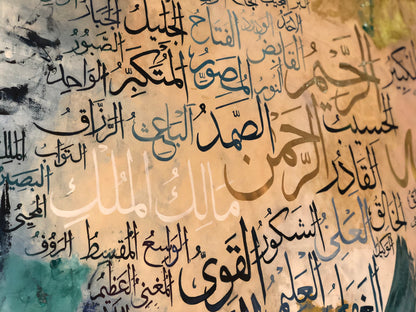 الجليل الجبار
الفتاح
الصبور
القابض
الواحد المتكبر المصور النور الرحيم
الرزاق الباعث الصمد الحسيب
التواب
مالك الملك الرحمن القادر
البصير
المحيي
الرؤوف المقسط الواسع القوي الشكور العلي الخالق
المغني العظيم
العليم